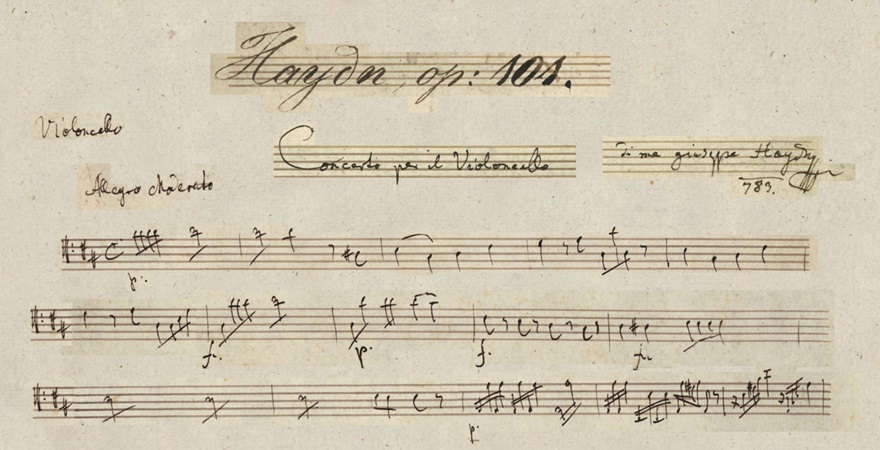 Haydn op: 101.
Violoncello
Concerto per il Violoncello
di me giuseppe Haydn
783.
Allegro Moderato
p.
f. p. f. f.
p.